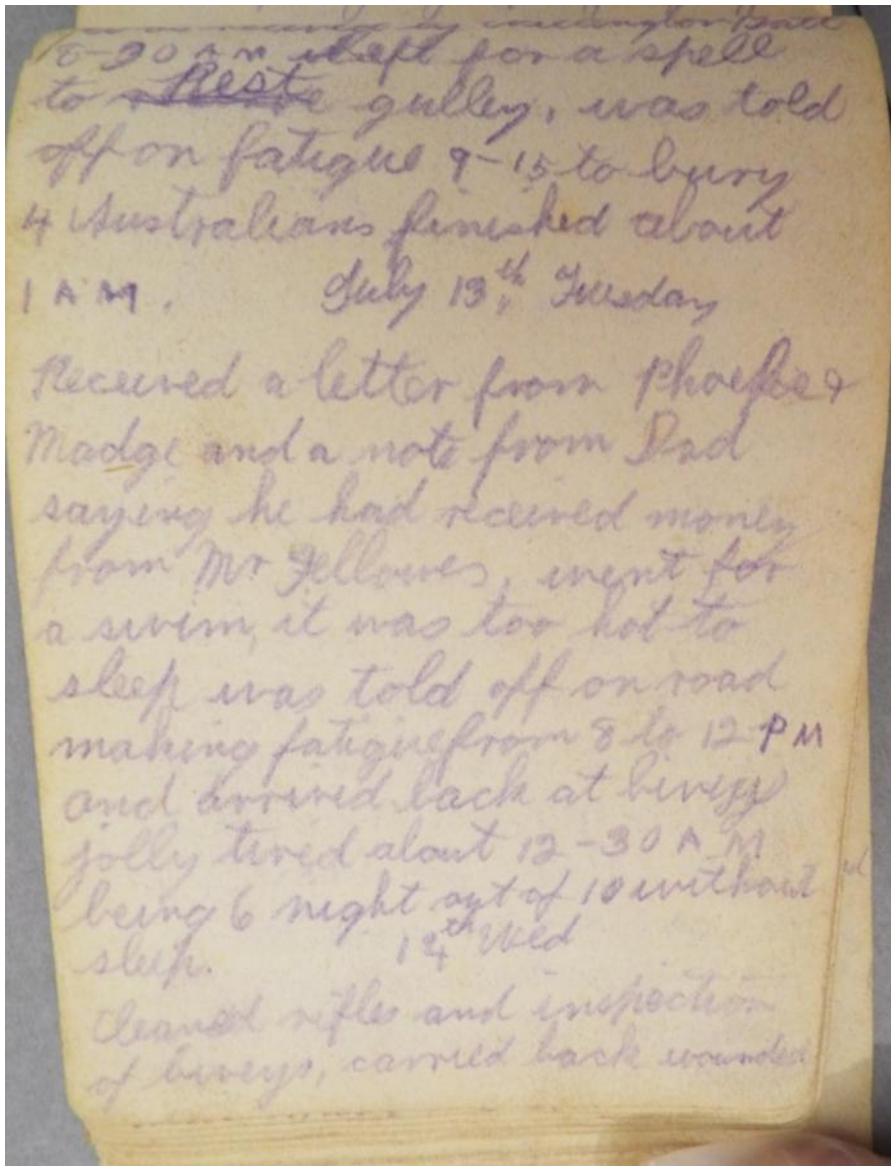 8-30 AM & left for a spell
to Rest gulley, was told
off on fatigue 9-15 to bury
4 Australians finished about
1 AM. July 13th Tuesday
Received a letter from Phoebe &
Madge and a note from Dad
saying he had received money
from Mr Fellowes, went for
a swim, it was too hot to
sleep was told off on road
making fatigue from 8 to 12 PM
and arrived back at bivvy
jolly tired about 12-30 AM
being 6 night out of 10 without
sleep. 14th Wed
Cleaned rifles and inspection
of bivvys, carried back wounded